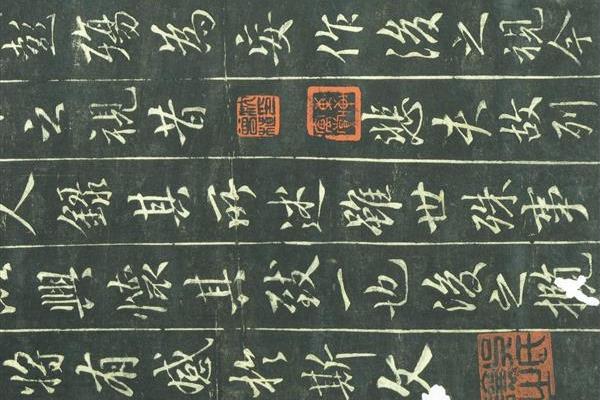 彭殤為妄作後之視今
之視昔悲夫故列
人錄其所述雖世殊事
以興懷其致一也後之攬
將有感於斯文